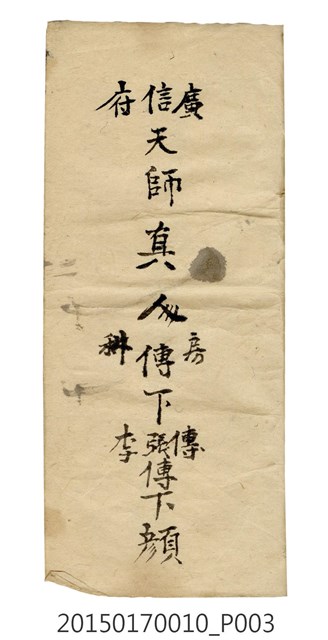 廣信府
天師真人
房傳科
下
傳張李
傳下顏
20150170010_P003